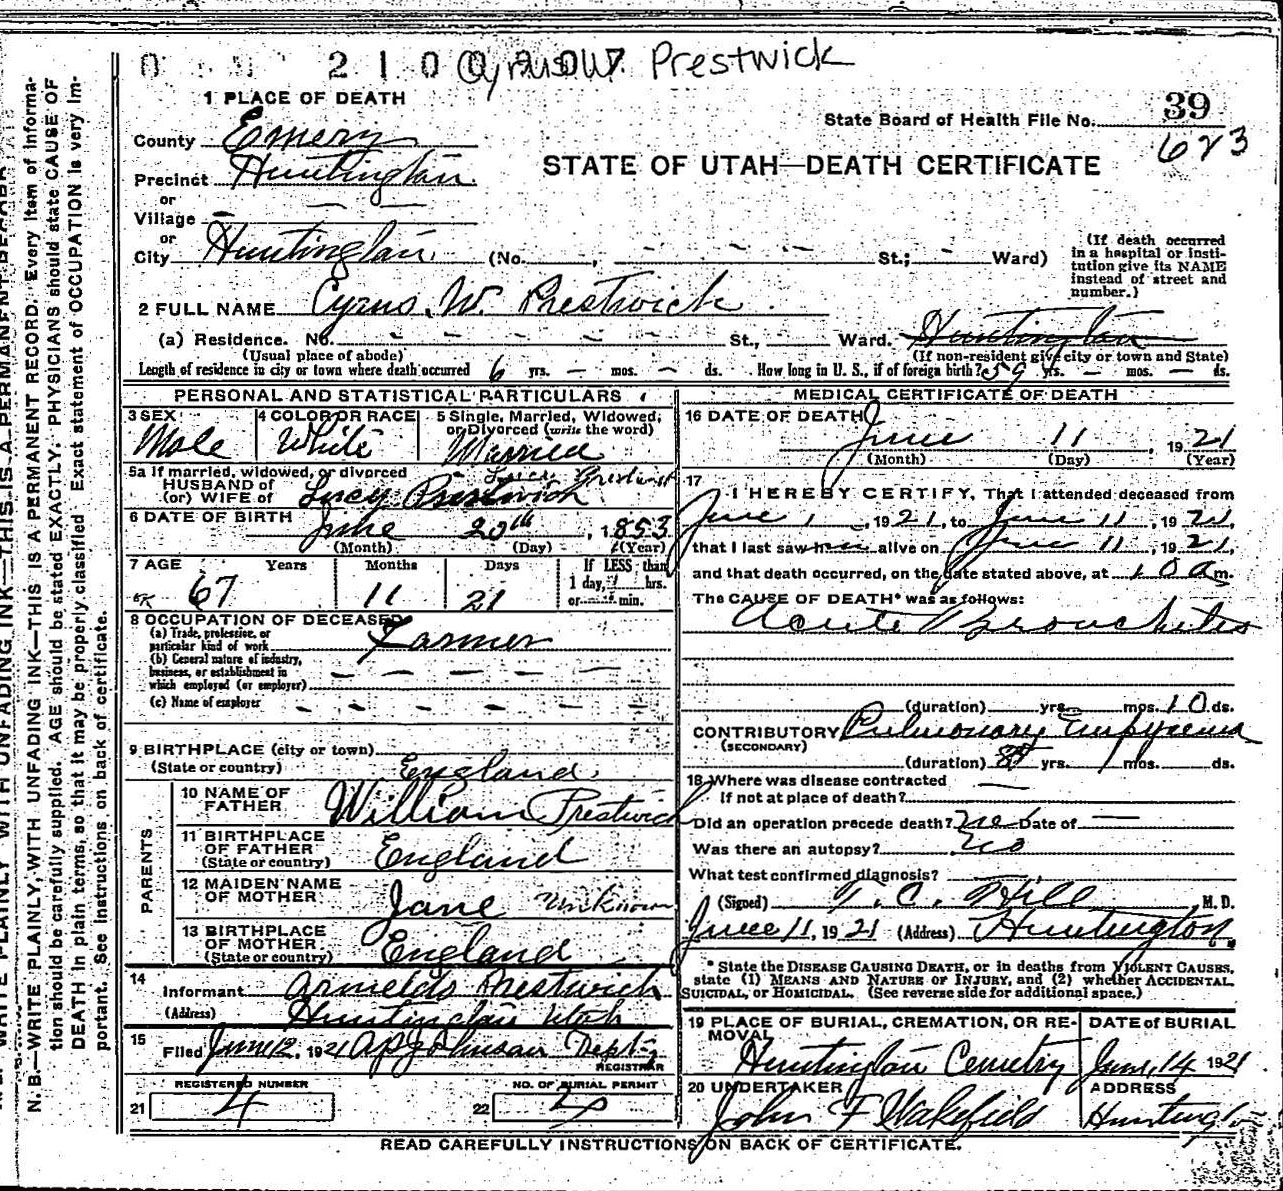 2 1 0 0
Cyrus W. Prestwick
1 PLACE OF DEATH
County Emery
Precinct Huntington
or
Village
or
City Huntington (No. , St.; Ward)
State Board of Health File No. 39
623
STATE OF UTAH—DEATH CERTIFICATE
(If death occurred in a hospital or institution give its NAME instead of street and number.)
2 FULL NAME Cyrus. W. Prestwich
(a) Residence. No. St., Ward. Huntington
(Usual place of abode) (If non-resident give city or town and State)
Length of residence in city or town where death occurred 6 yrs. — mos. — ds. How long in U. S., if of foreign birth? 59 yrs. — mos. — ds.
PERSONAL AND STATISTICAL PARTICULARS
3 SEX Male
4 COLOR OR RACE White
5 Single, Married, Widowed, or Divorced (write the word) Married
5a If married, widowed, or divorced
HUSBAND of
(or) WIFE of Lucy Prestwich
6 DATE OF BIRTH June 20th, 1853
(Month) (Day) (Year)
7 AGE Years Months Days If LESS than
67 11 21 1 day, hrs.
or min.
8 OCCUPATION OF DECEASED
(a) Trade, profession, or particular kind of work Farmer
(b) General nature of industry, business, or establishment in which employed (or employer)
(c) Name of employer
9 BIRTHPLACE (city or town)
(State or country) England.
PARENTS
10 NAME OF FATHER William Prestwich
11 BIRTHPLACE OF FATHER (State or country) England
12 MAIDEN NAME OF MOTHER Jane Unknown
13 BIRTHPLACE OF MOTHER (State or country) England
14 Informant Prestwich
(Address) Huntington Utah
15 Filed June 12, 1921 Johnson Dept
REGISTRAR
REGISTERED NUMBER
21 4
NO. OF BURIAL PERMIT
22
MEDICAL CERTIFICATE OF DEATH
16 DATE OF DEATH June 11, 1921
(Month) (Day) (Year)
17 I HEREBY CERTIFY, That I attended deceased from
June 1, 1921, to June 11, 1921,
that I last saw him alive on June 11, 1921,
and that death occurred, on the date stated above, at 10 a m.
The CAUSE OF DEATH* was as follows:
Acute Bronchitis
(duration) yrs. mos. 10 ds.
CONTRIBUTORY Pulmonary Empyema
(SECONDARY)
(duration) yrs. mos. ds.
18 Where was disease contracted
If not at place of death?
Did an operation precede death? Date of —
Was there an autopsy? No
What test confirmed diagnosis?
(Signed) T. C. Hill M. D.
June 11, 1921 (Address) Huntington.
* State the DISEASE CAUSING DEATH, or in deaths from VIOLENT CAUSES, state (1) MEANS AND NATURE OF INJURY, and (2) whether ACCIDENTAL, SUICIDAL, or HOMICIDAL. (See reverse side for additional space.)
19 PLACE OF BURIAL, CREMATION, OR REMOVAL Huntington Cemetry
DATE of BURIAL June, 14 1921
20 UNDERTAKER John F Wakefield
ADDRESS Huntington
READ CAREFULLY INSTRUCTIONS ON BACK OF CERTIFICATE.
N. B.—WRITE PLAINLY, WITH UNFADING INK—THIS IS A PERMANENT RECORD. Every item of information should be carefully supplied. AGE should be stated EXACTLY. PHYSICIANS should state CAUSE OF DEATH in plain terms, so that it may be properly classified. Exact statement of OCCUPATION is very important. See instructions on back of certificate.